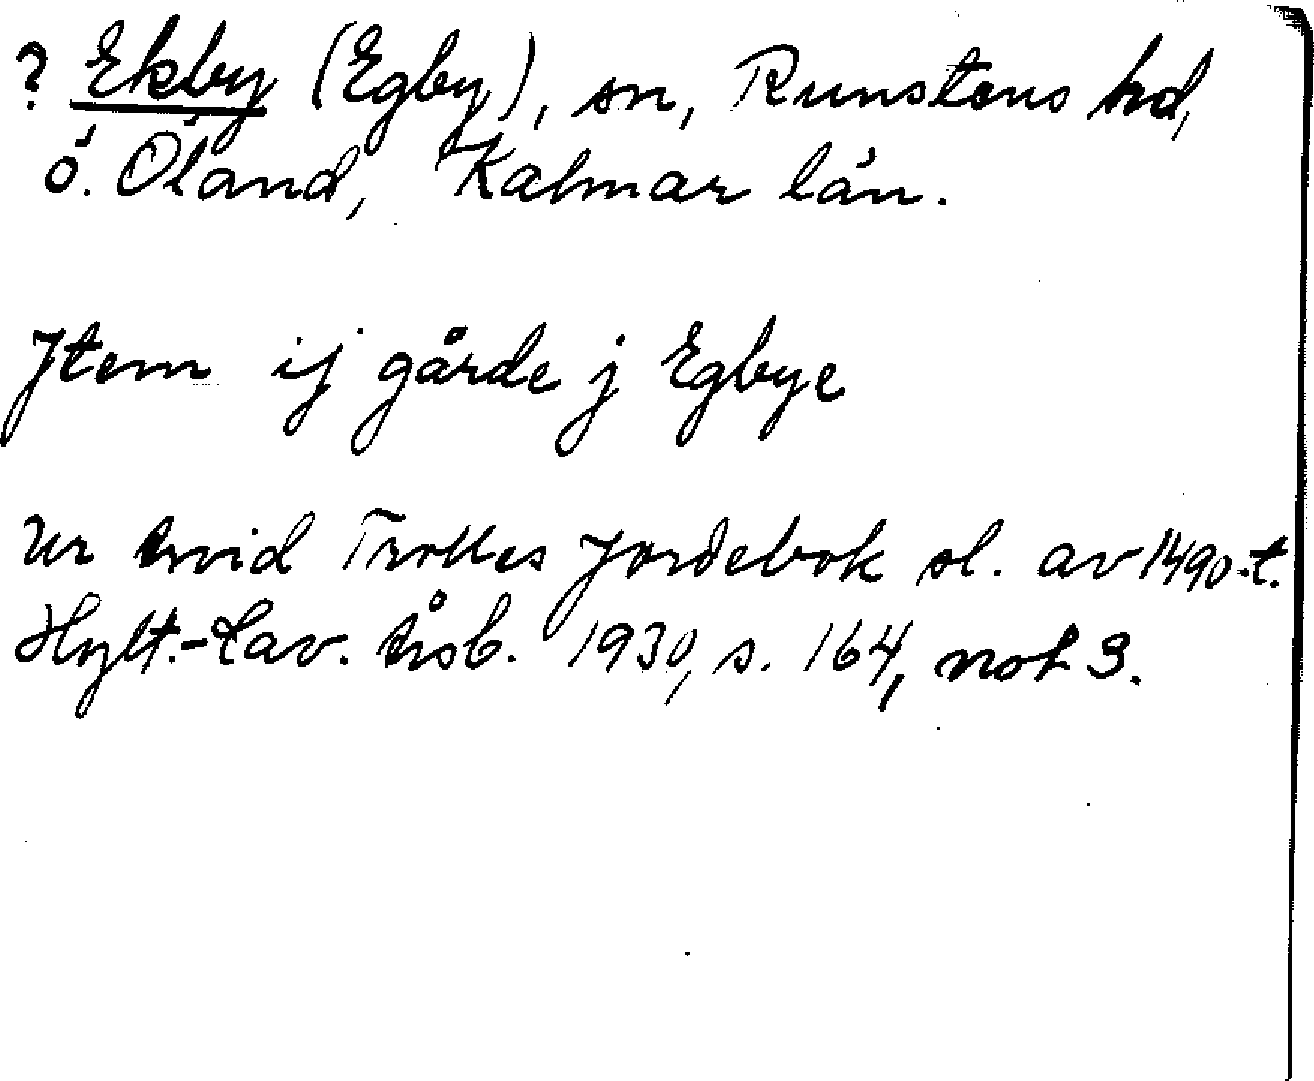 ? Ekby (Egby), sn, Runstens hd,
ö. Öland, Kalmar län.
Jtem ij gårde j Egbye
Ur Arvid Trolles Jordebok sl. av 1490-t.
Hylt.-Cav. Årsb. 1930, s. 164, not 3.